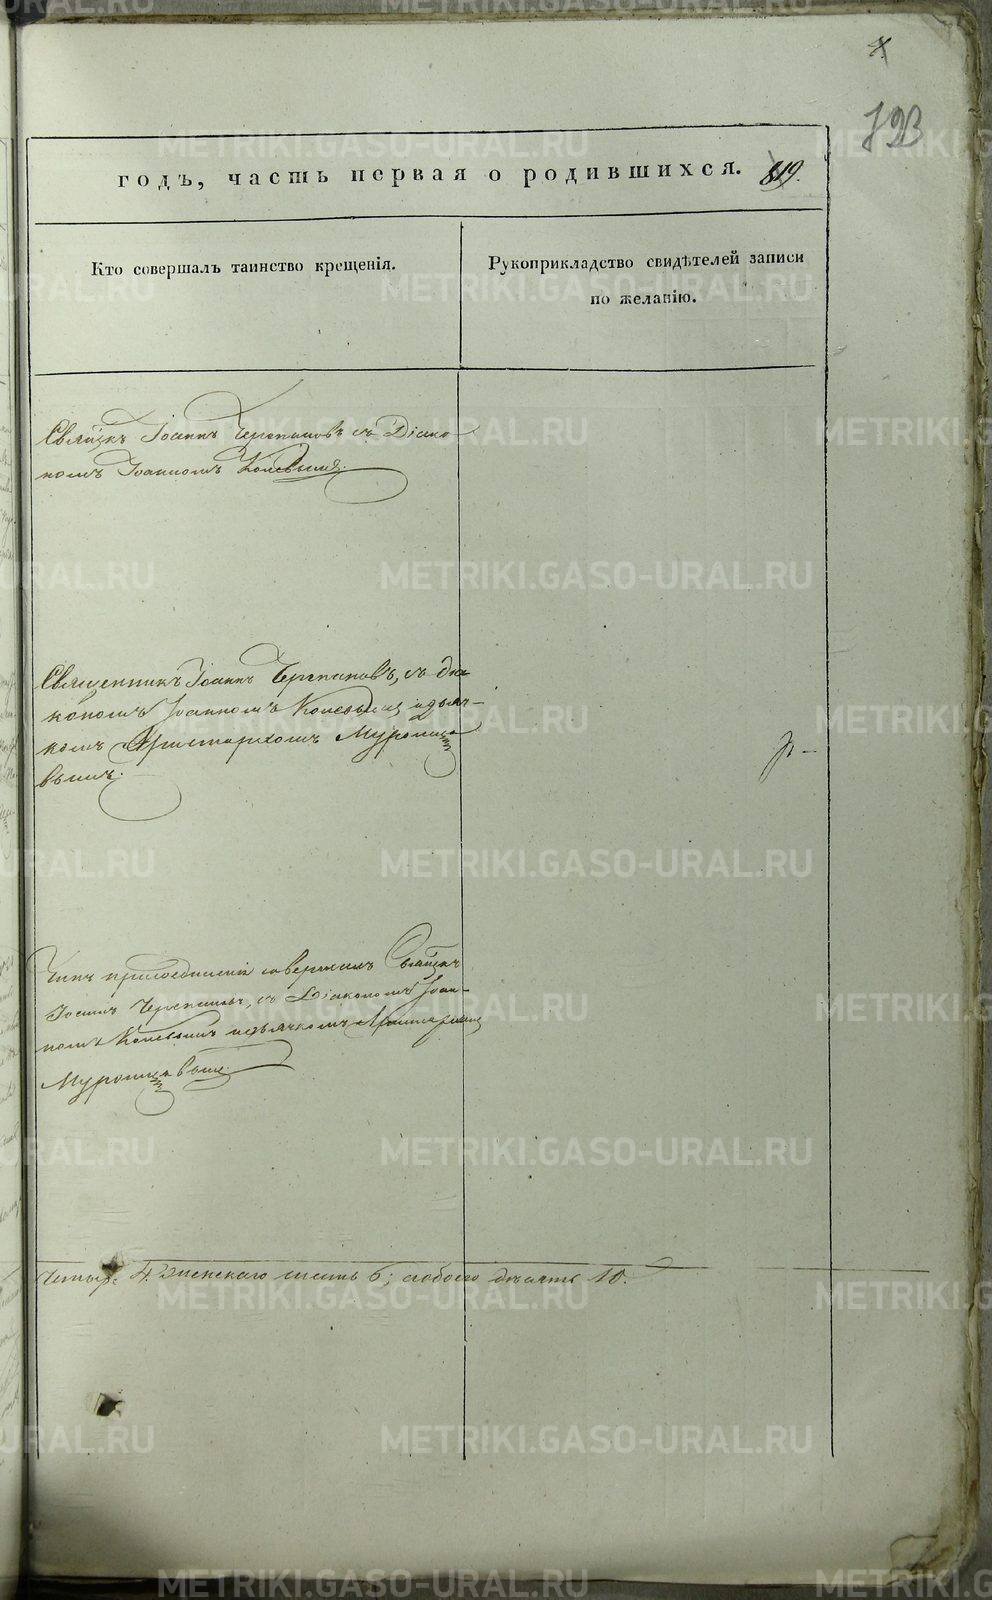 823
годъ, часть первая о родившихся. 819.
Кто совершалъ таинство крещенія.
Рукоприкладство свидѣтелей записи
по желанію.
Священкъ Іоаннъ Черепановъ съ Діако-
номъ Іоанномъ Коневымъ.
Священникъ Іоаннъ Черепановъ, съ діа-
кономъ Іоанномъ Коневымъ и дьяч-
комъ Аристархомъ Муромца-
вымъ.
Чинъ присоединенія совершилъ Священкъ
Іоаннъ Черепановъ, съ Діакономъ Іоан-
номъ Коневымъ и дьячкомъ Аристархомъ
Муромцавымъ.
Четыре 4. женскаго шесть 6; обоего десять 10.
METRIKI.GASO-URAL.RU